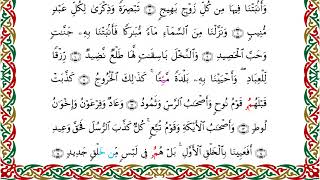 وَأَنۢبَتْنَا فِيهَا مِن كُلِّ زَوْجٍۭ بَهِيجٍ تَبْصِرَةً وَذِكْرَىٰ لِكُلِّ عَبْدٍ
مُّنِيبٍ وَنَزَّلْنَا مِنَ ٱلسَّمَآءِ مَآءً مُّبَٰرَكًا فَأَنۢبَتْنَا بِهِۦ جَنَّٰتٍ
وَحَبَّ ٱلْحَصِيدِ وَٱلنَّخْلَ بَاسِقَٰتٍ لَّهَا طَلْعٌ نَّضِيدٌ رِّزْقًا
لِّلْعِبَادِ ۖ وَأَحْيَيْنَا بِهِۦ بَلْدَةً مَّيْتًا ۚ كَذَٰلِكَ ٱلْخُرُوجُ كَذَّبَتْ
قَبْلَهُمْ قَوْمُ نُوحٍ وَأَصْحَٰبُ ٱلرَّسِّ وَثَمُودُ وَعَادٌ وَفِرْعَوْنُ وَإِخْوَٰنُ
لُوطٍ وَأَصْحَٰبُ ٱلْأَيْكَةِ وَقَوْمُ تُبَّعٍ ۚ كُلٌّ كَذَّبَ ٱلرُّسُلَ فَحَقَّ وَعِيدِ
أَفَعَيِينَا بِٱلْخَلْقِ ٱلْأَوَّلِ ۚ بَلْ هُمْ فِى لَبْسٍ مِّنْ خَلْقٍ جَدِيدٍ